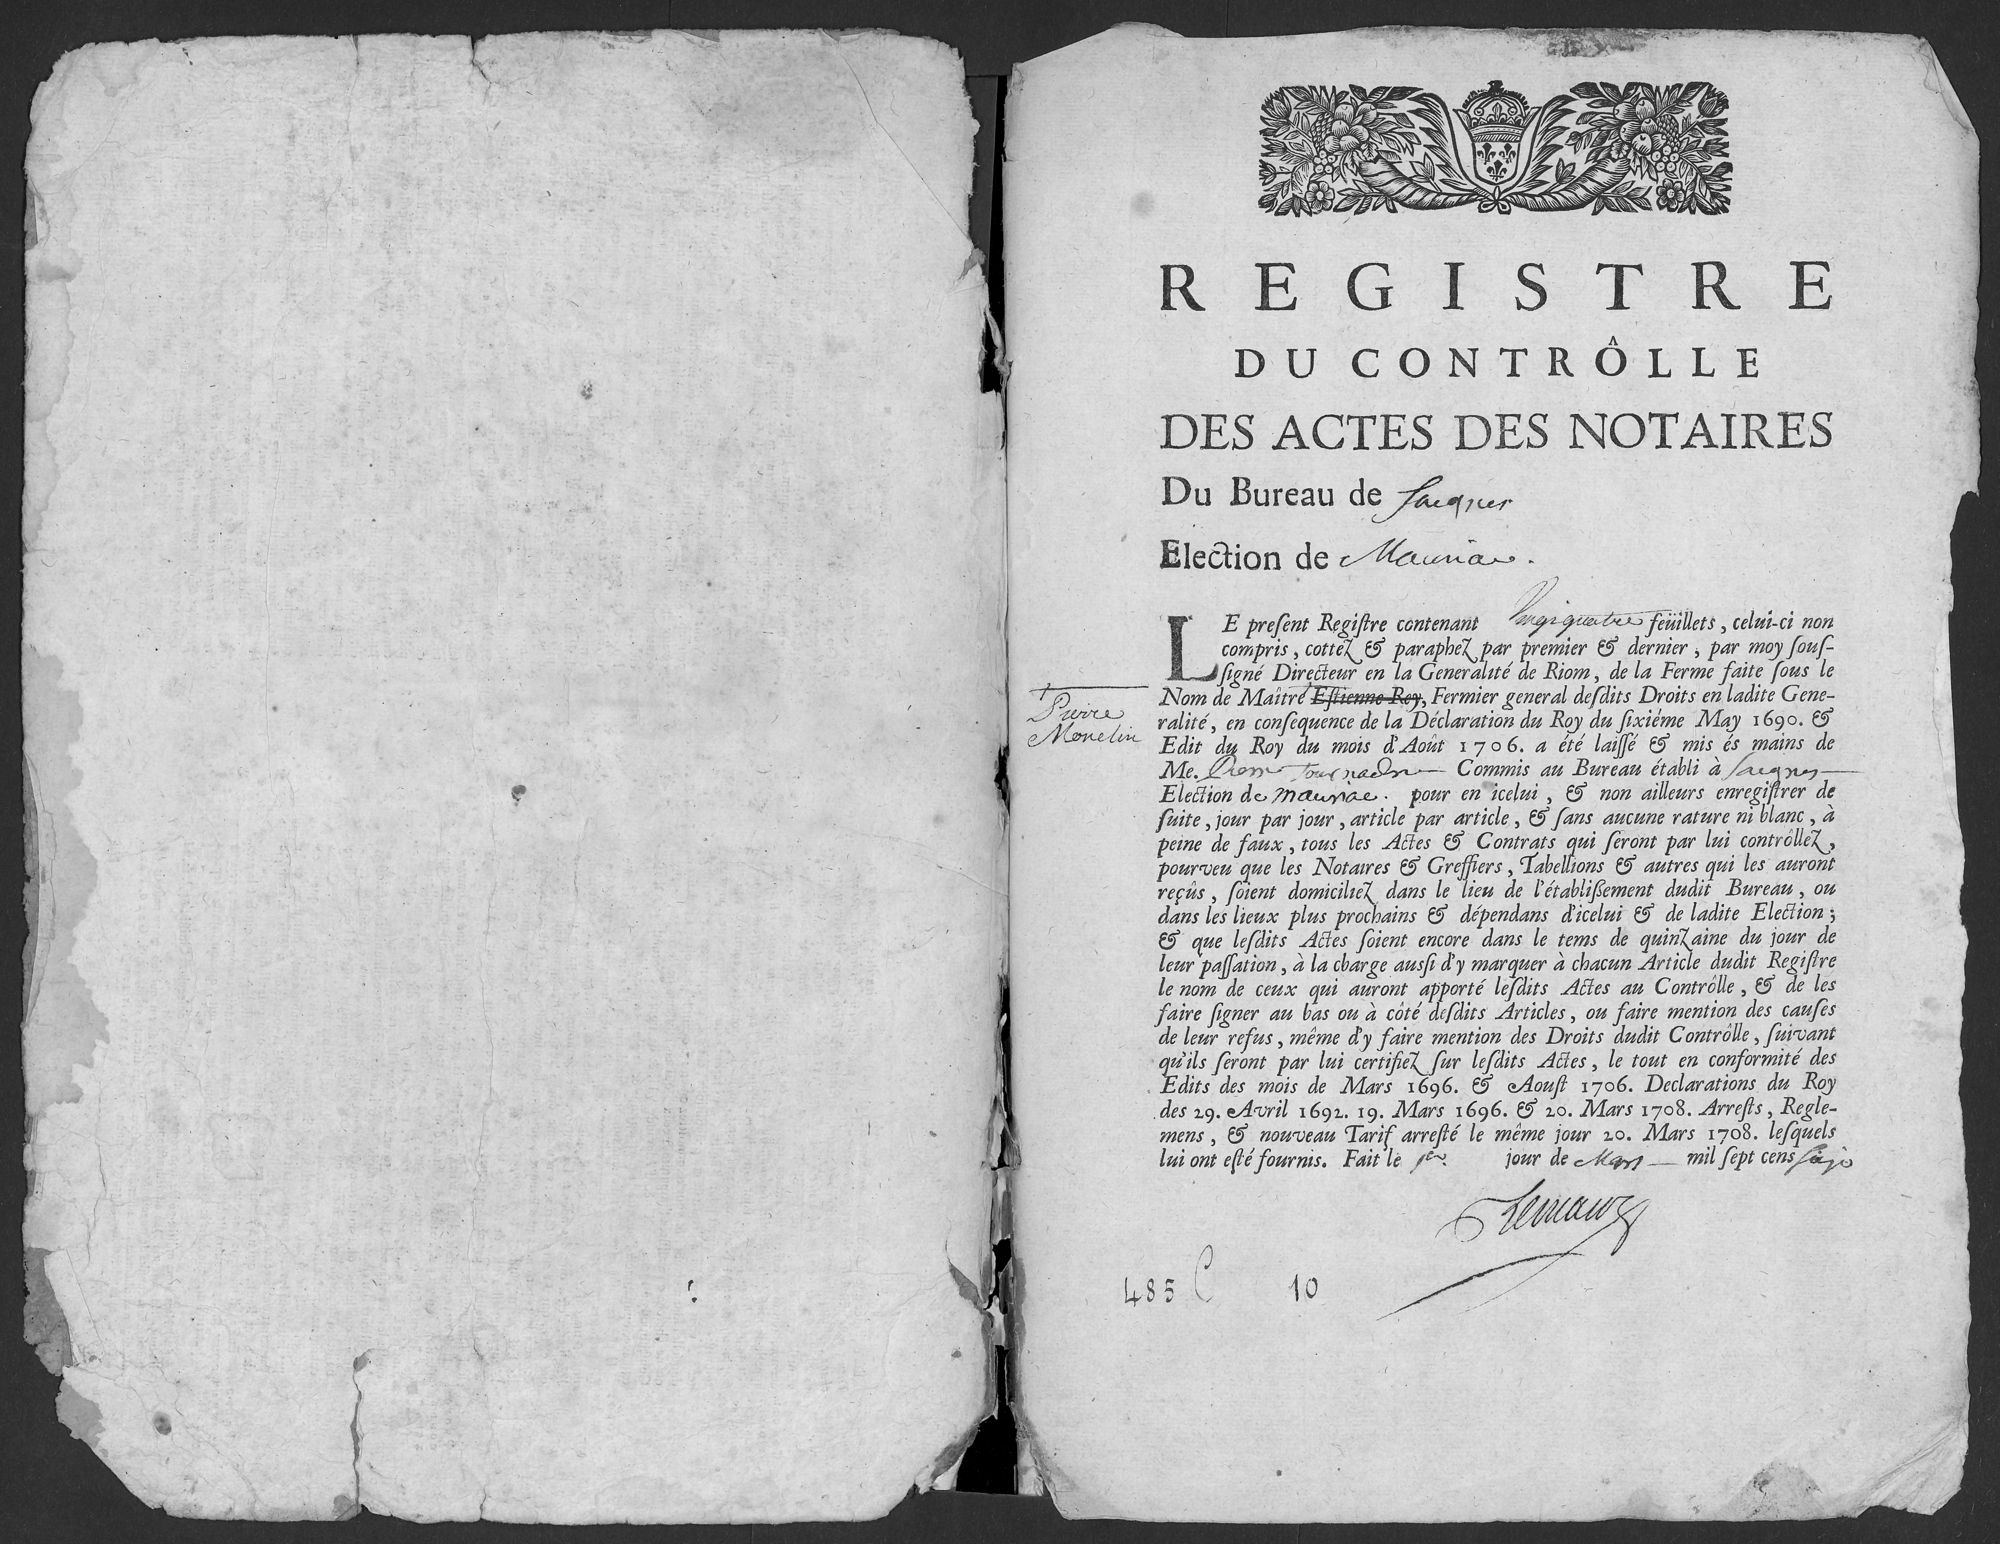 REGISTRE
DU CONTRÔLLE
DES ACTES DES NOTAIRES
Du Bureau de Saignes
Election de Mauriac.
LE present Registre contenant Vingtquatre feüillets, celui-ci non
compris, cottez & paraphez par premier & dernier, par moy sous-
signé Directeur en la Generalité de Riom, de la Ferme faite sous le
Nom de Maître Estienne Rey, Fermier general desdits Droits en ladite Gene-
Pierre
Monelin
ralité, en consequence de la Déclaration du Roy du sixiéme May 1690. &
Edit du Roy du mois d'Août 1706. a été laissé & mis és mains de
Me. Commis au Bureau établi à Saignes
Election de Mauriac. pour en icelui, & non ailleurs enregistrer de
suite, jour par jour, article par article, & sans aucune rature ni blanc, à
peine de faux, tous les Actes & Contrats qui seront par lui contrôllez,
pourveu que les Notaires & Greffiers, Tabellions & autres qui les auront
reçûs, soient domiciliez dans le lieu de l'établissement dudit Bureau, ou
dans les lieux plus prochains & dépendans d'icelui & de ladite Election;
& que lesdits Actes soient encore dans le tems de quinzaine du jour de
leur passation, à la charge aussi d'y marquer à chacun Article dudit Registre
le nom de ceux qui auront apporté lesdits Actes au Contrôlle, & de les
faire signer au bas ou à côté desdits Articles, ou faire mention des causes
de leur refus, même d'y faire mention des Droits dudit Contrôlle, suivant
qu'ils seront par lui certifiez sur lesdits Actes, le tout en conformité des
Edits des mois de Mars 1696. & Aoust 1706. Declarations du Roy
des 29. Avril 1692. 19. Mars 1696. & 20. Mars 1708. Arrests, Regle-
mens, & nouveau Tarif arresté le même jour 20. Mars 1708. lesquels
lui ont esté fournis. Fait le 1er. jour de Mars mil sept cens
485 C 10